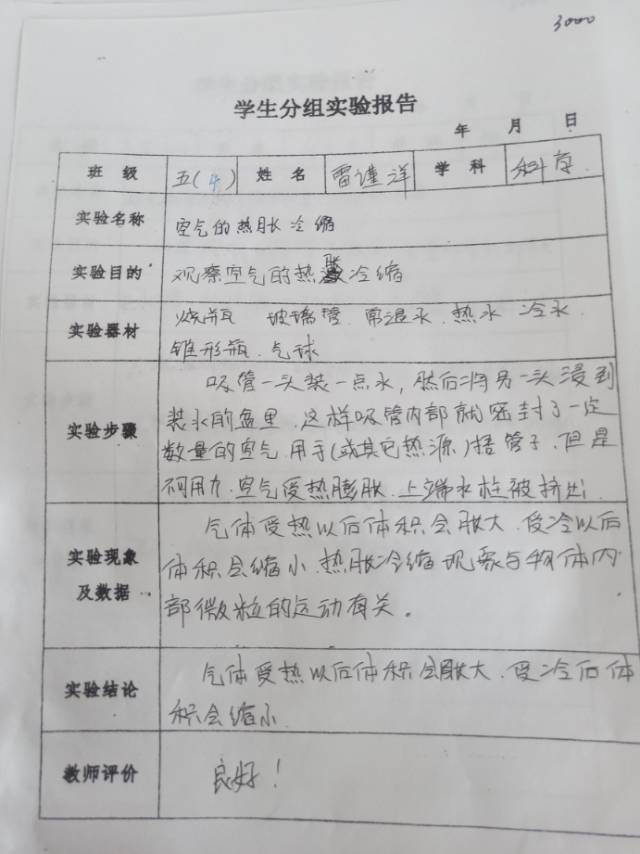 3000
学生分组实验报告
年 月 日
班 级 五(4) 姓 名 雷谨洋 学 科 科学
实验名称 空气的热胀冷缩
实验目的 观察空气的热胀冷缩
实验器材 烧瓶 玻璃管 常温水 热水 冷水
锥形瓶 气球
实验步骤 吸管一头装一点水，然后将另一头浸到
装水的盆里 这样吸管内部就密封了一定
数量的空气 用手(或其它热源)捂管子 但是
不可用力 空气受热膨胀 上端水柱被挤出
实验现象及数据 气体受热以后体积会胀大 受冷以后
体积会缩小 热胀冷缩现象与物体内
部微粒的运动有关。
实验结论 气体受热以后体积会胀大 受冷后体
积会缩小
教师评价 良好！